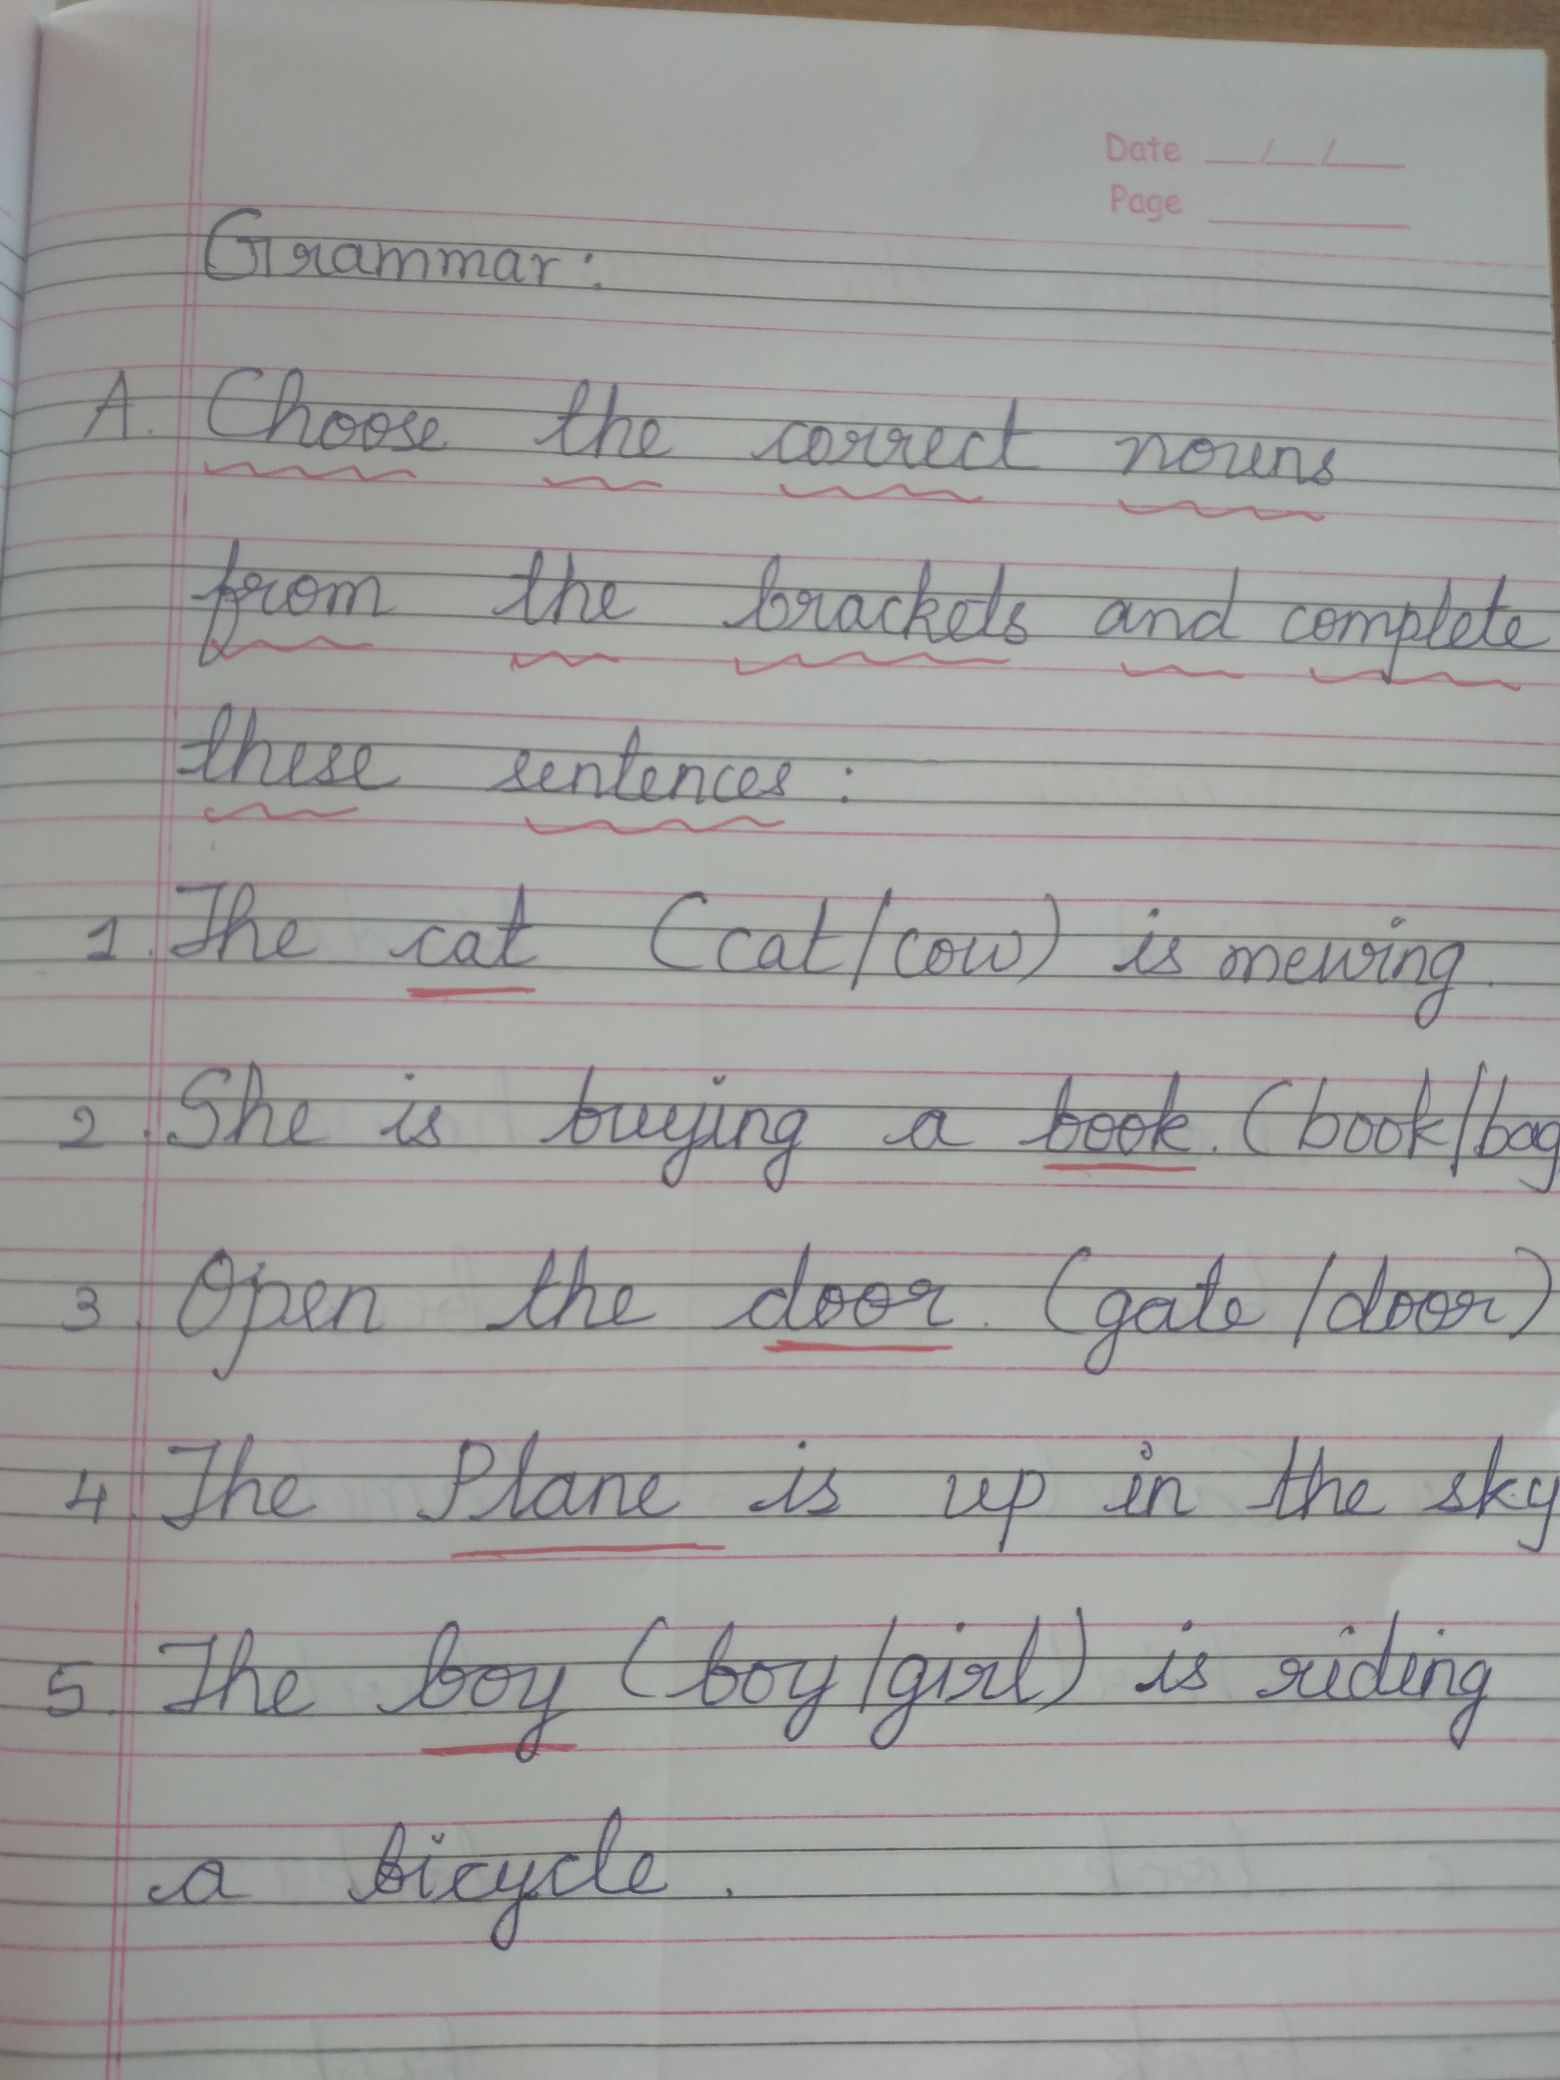 Date / /
Page
Grammar:
A. Choose the correct nouns
from the brackets and complete
these sentences:
1. The cat (cat/cow) is mewing.
2. She is buying a book. (book/bag
3. Open the door. (gate/door)
4. The Plane is up in the sky
5. The boy (boy/girl) is riding
a bicycle.